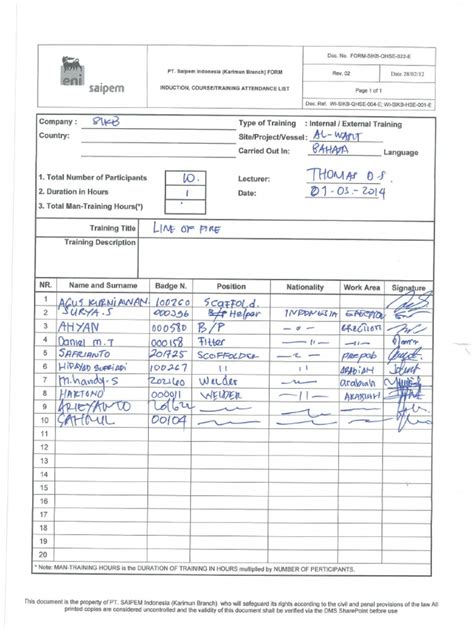 eni saipem
PT. Saipem Indonesia (Karimun Branch) FORM
INDUCTION, COURSE/TRAINING ATTENDANCE LIST
Doc. No. FORM-SIKB-QHSE-022-E
Rev. 02 Date 28/02/12
Page 1 of 1
Doc. Ref. WI-SIKB-QHSE-004-E; WI-SIKB-HSE-001-E
Company : SIKB Type of Training : Internal / External Training
Country: Site/Project/Vessel: AL-WASIT
Carried Out In: BAHASA Language
1. Total Number of Participants 10. Lecturer: THOMAS D.S.
2. Duration in Hours 1 Date: 01-03-2014
3. Total Man-Training Hours(*)
Training Title LINE OF FIRE
Training Description
NR. Name and Surname Badge N. Position Nationality Work Area Signature
1 AGUS KURNIAWAN 100260 Scaffold.
2 SURYA.S 000356 Helper INDONESIA ERECTION
3 AHYAN 000580 B/P -"- ERECTION
4 Daniel m.T 000158 Fitter -"-
5 SAFRIANTO 201725 SCAFFOLDER -"- prepab
6 HIDAYAD 100267 " "
7 m.handy-S 202160 Welder
8 HARTONO 000011 WELDER -"-
9 ARIEYANTO
10 SAHRUL 00104
11
12
13
14
15
16
17
18
19
20
* Note: MAN-TRAINING HOURS is the DURATION OF TRAINING IN HOURS multiplied by NUMBER OF PARTICIPANTS.
This document is the property of PT. SAIPEM Indonesia (Karimun Branch) who will safeguard its rights according to the civil and penal provisions of the law All
printed copies are considered uncontrolled and the validity of this document shall be verified via the DMS SharePoint before use